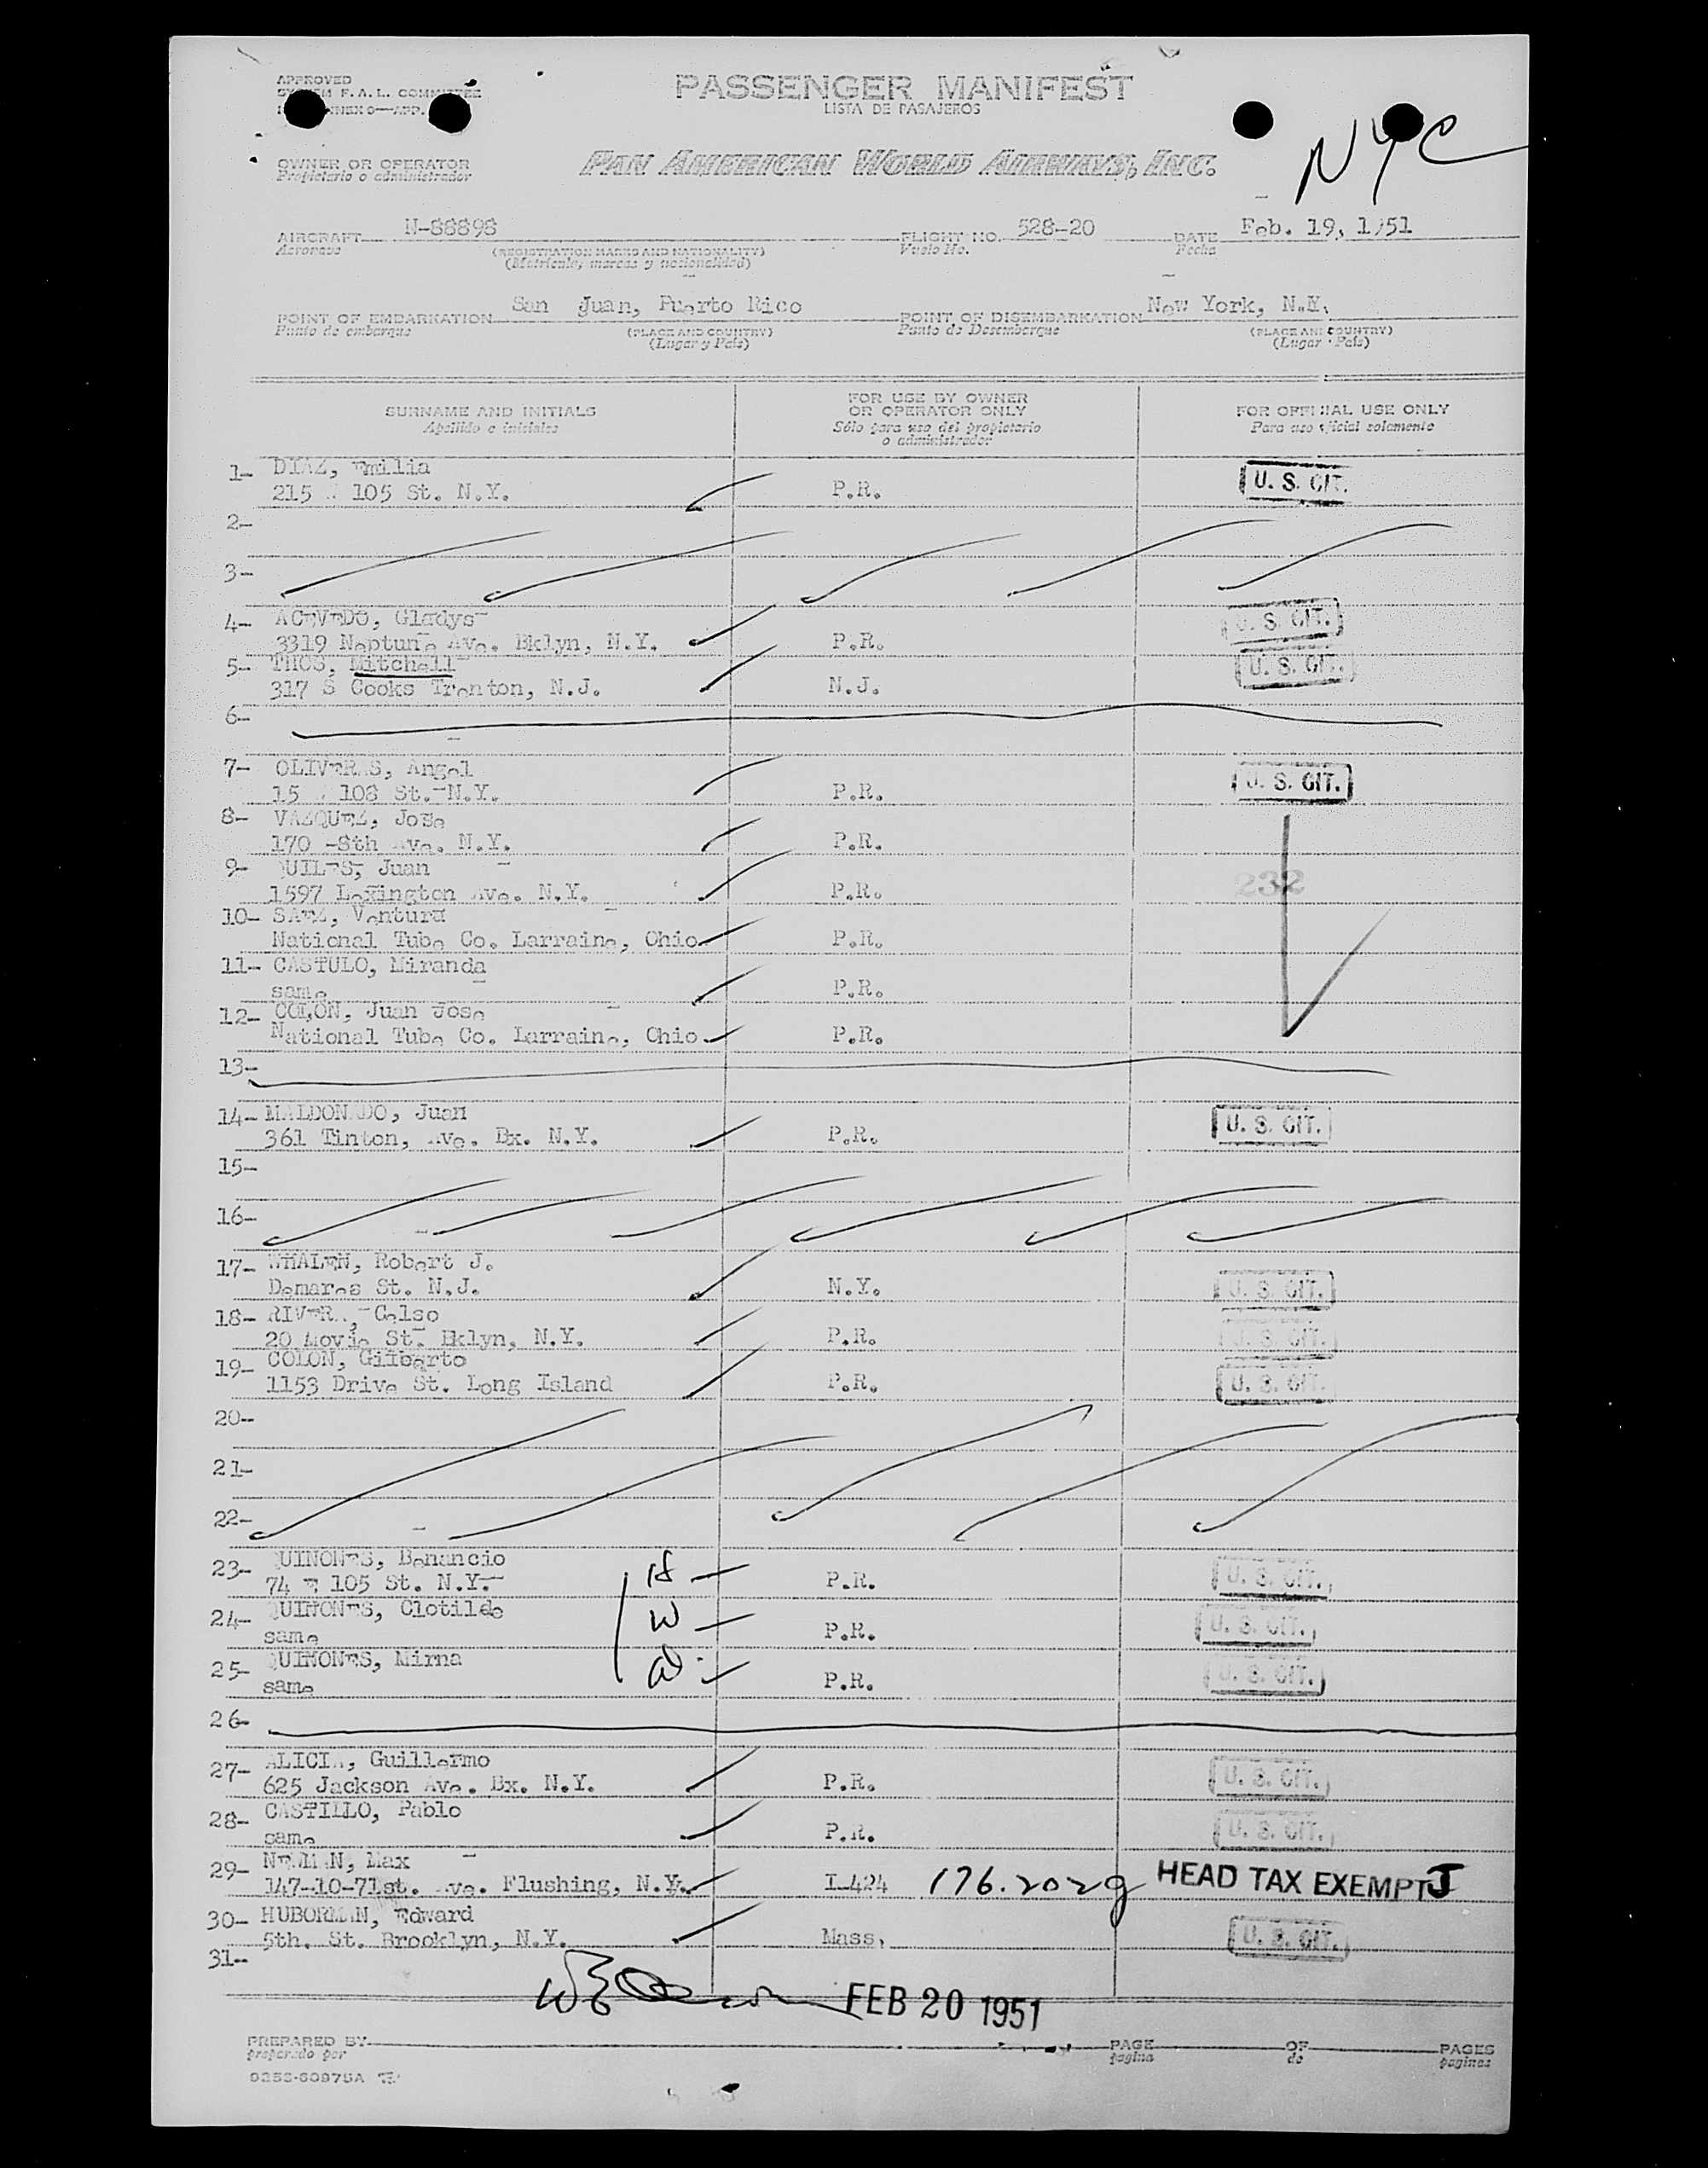 APPROVED
F.A.L. COMMITTEE
PASSENGER MANIFEST
LISTA DE PASAJEROS
NYC
OWNER OR OPERATOR
Propietario o administrador
PAN AMERICAN WORLD AIRWAYS, INC.
AIRCRAFT N-88898 FLIGHT NO. 528-20 DATE Feb. 19, 1951
Aeronave (REGISTRATION MARKS AND NATIONALITY) Vuelo No. Fecha
(Matrícula, marcas y nacionalidad)
POINT OF EMBARKATION San Juan, Puerto Rico POINT OF DISEMBARKATION New York, N.Y.
Punto de embarque (PLACE AND COUNTRY) Punto de Desembarque (PLACE AND COUNTRY)
(Lugar y País) (Lugar País)
SURNAME AND INITIALS FOR USE BY OWNER OR OPERATOR ONLY FOR OFFICIAL USE ONLY
Apellido e iniciales Sólo para uso del propietario o administrador Para uso oficial solamente
1- DIAZ, Emilia
215 105 St. N.Y. P.R. U. S. CIT.
2-
3-
4- ACEVEDO, Gladys
3319 Neptune Ave. Bklyn, N.Y. P.R. U. S. CIT.
5- THOS, Mitchell
317 S Cooks Trenton, N.J. N.J. U. S. CIT.
6-
7- OLIVERAS, Angel
15 108 St. N.Y. P.R. U. S. CIT.
8- VAZQUEZ, Jose
170 -8th Ave. N.Y. P.R.
9- QUILES, Juan
1597 Lexington Ave. N.Y. P.R. 232
10- SAEZ, Ventura
National Tube Co. Larraine, Ohio P.R.
11- CASTULO, Miranda
same P.R.
12- COLON, Juan Jose
National Tube Co. Larraine, Ohio P.R.
13-
14- MALDONADO, Juan
361 Tinton, Ave. Bx. N.Y. P.R. U. S. CIT.
15-
16-
17- WHALEN, Robert J.
Demares St. N.J. N.Y. U. S. CIT.
18- RIVERA, Celso
20 Movie St. Bklyn, N.Y. P.R. U. S. CIT.
19- COLON, Gilberto
1153 Drive St. Long Island P.R. U. S. CIT.
20-
21-
22-
23- QUINONES, Benancio H
74 E 105 St. N.Y. P.R. U. S. CIT.
24- QUINONES, Clotilde W
same P.R. U. S. CIT.
25- QUINONES, Mirna
same P.R. U. S. CIT.
26-
27- ALICIA, Guillermo
625 Jackson Ave. Bx. N.Y. P.R. U. S. CIT.
28- CASTILLO, Pablo
same P.R. U. S. CIT.
29- NEWMAN, Max
147-10-71st. Ave. Flushing, N.Y. I-424 176.2029 HEAD TAX EXEMPT J
30- HUBORMAN, Edward
5th. St. Brooklyn, N.Y. Mass. U. S. CIT.
31-
FEB 20 1951
PREPARED BY PAGE OF PAGES
preparado por pagina de paginas
9252-60975A